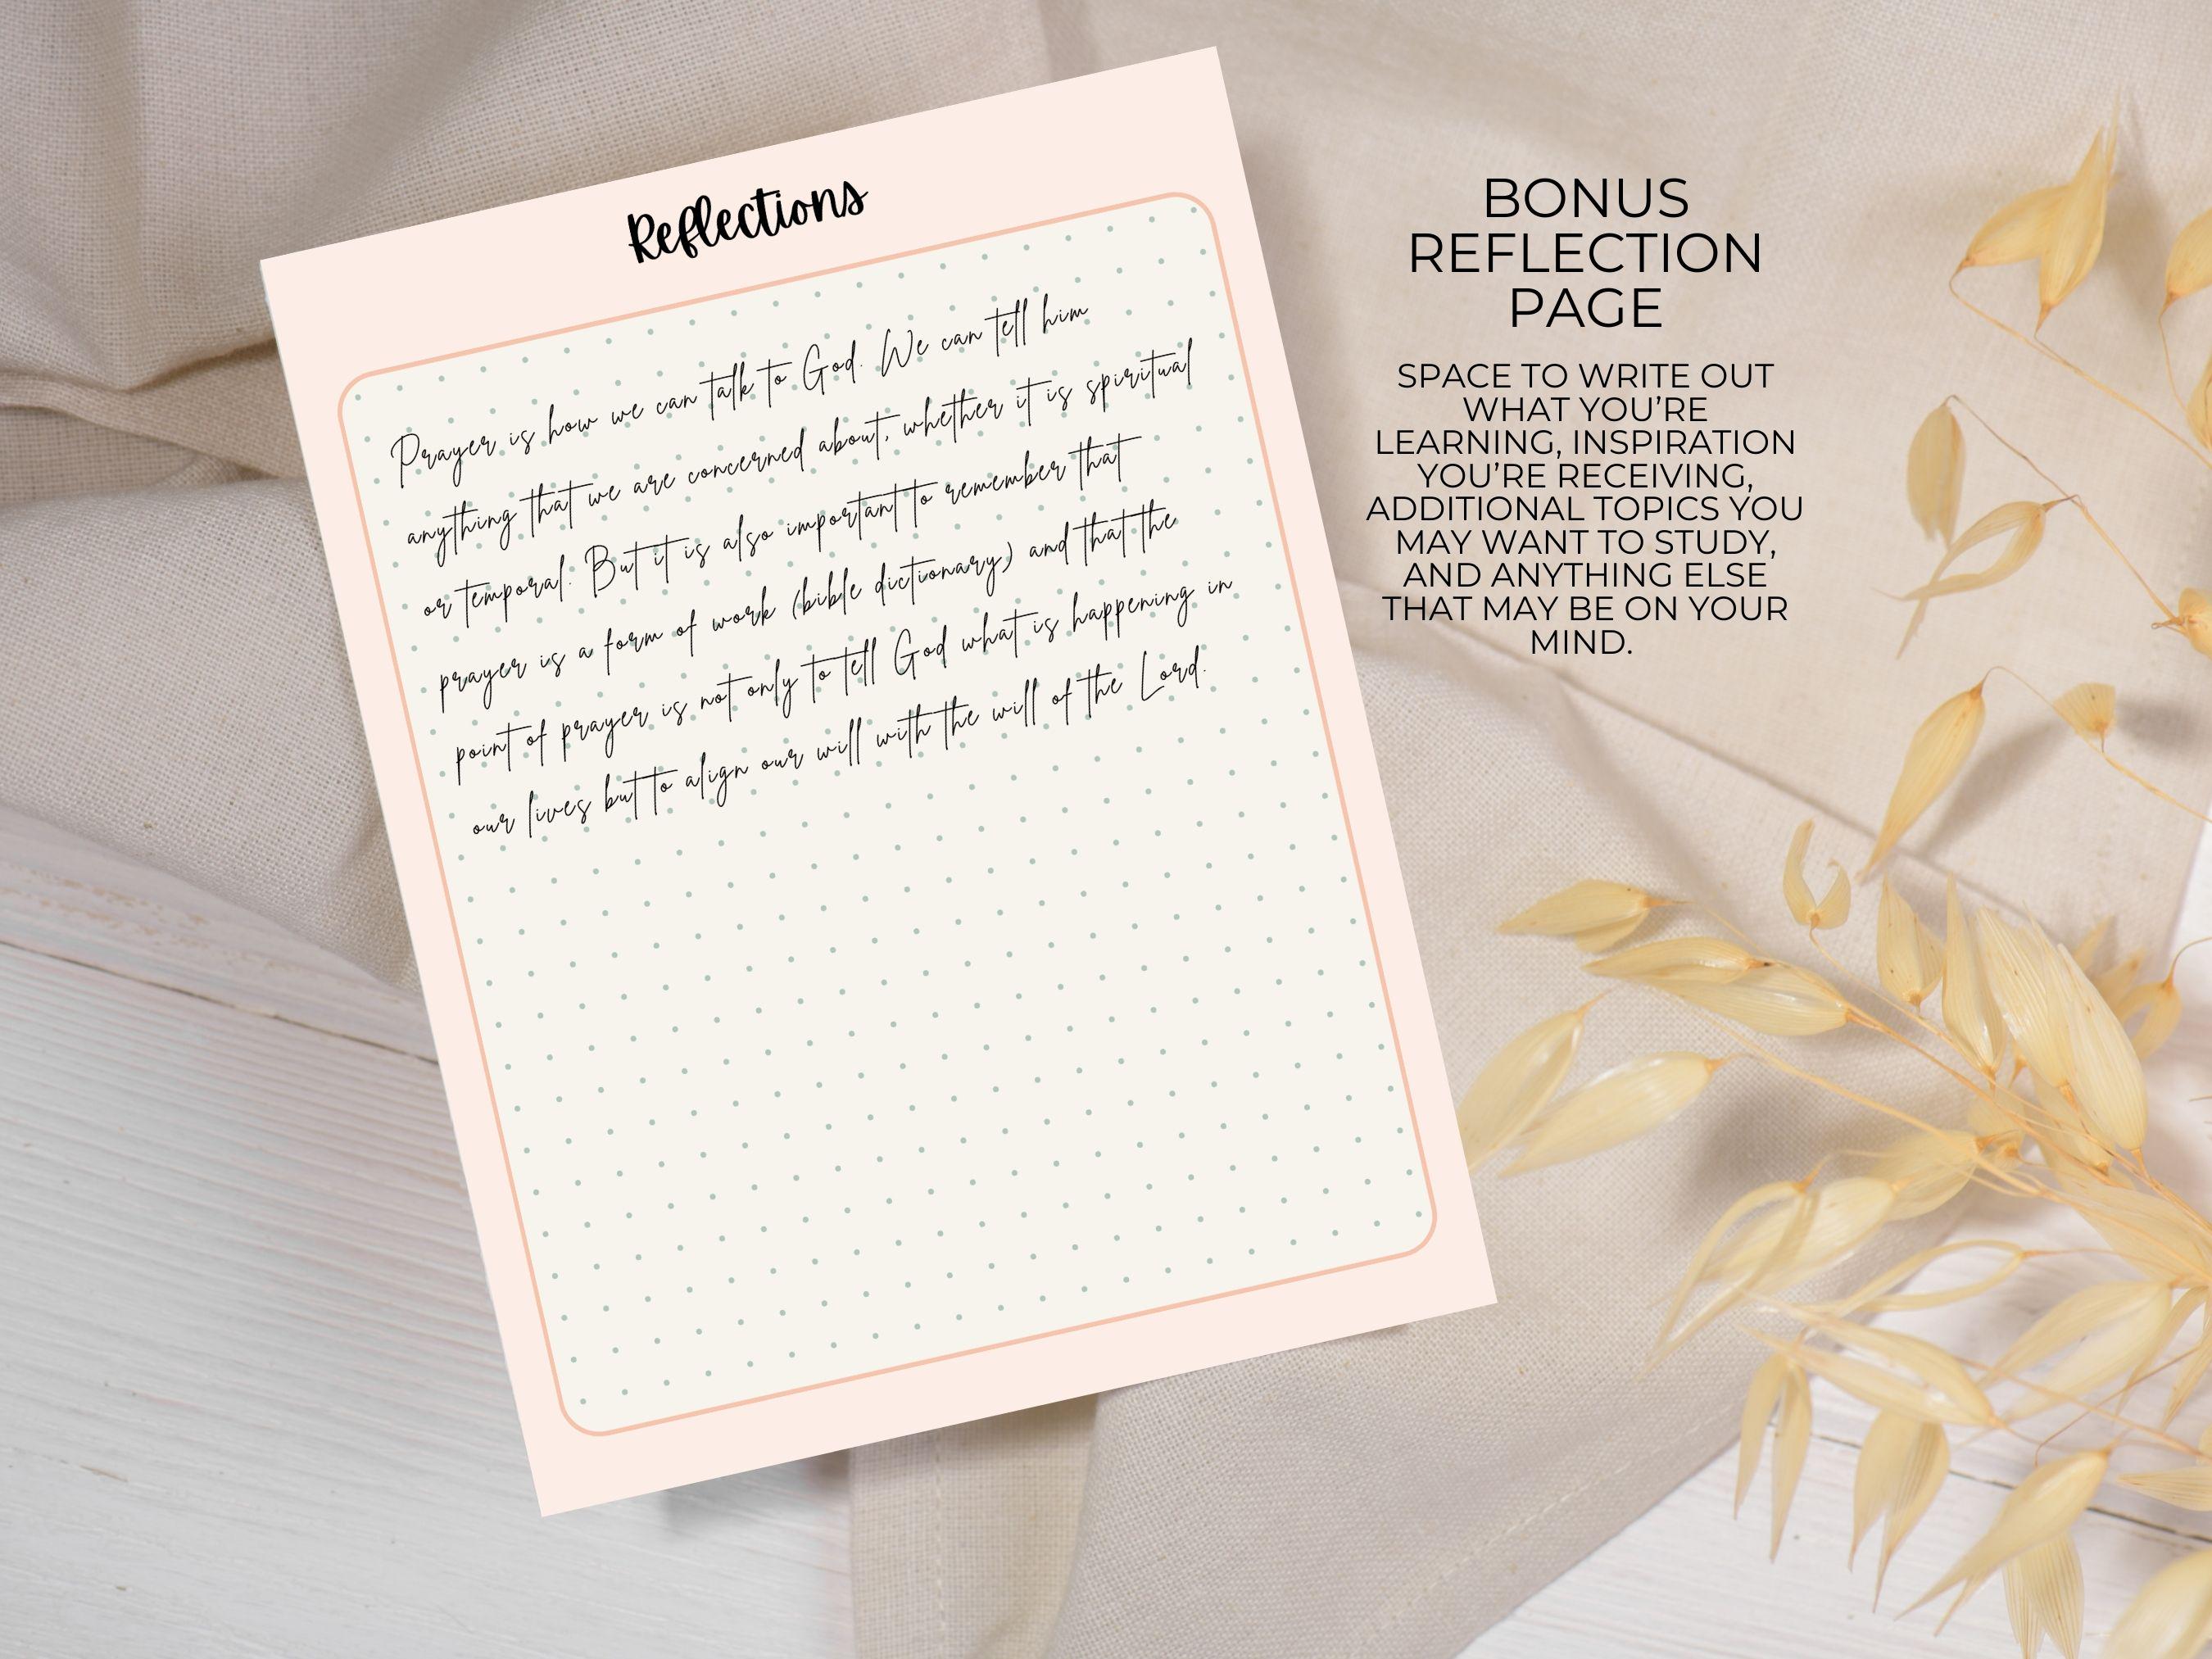 Reflections
Prayer is how we can talk to God. We can tell him
anything that we are concerned about, whether it is spiritual
or temporal. But it is also important to remember that
prayer is a form of work (bible dictionary) and that the
point of prayer is not only to tell God what is happening in
our lives but to align our will with the will of the Lord.
BONUS
REFLECTION
PAGE
SPACE TO WRITE OUT
WHAT YOU'RE
LEARNING, INSPIRATION
YOU'RE RECEIVING,
ADDITIONAL TOPICS YOU
MAY WANT TO STUDY,
AND ANYTHING ELSE
THAT MAY BE ON YOUR
MIND.